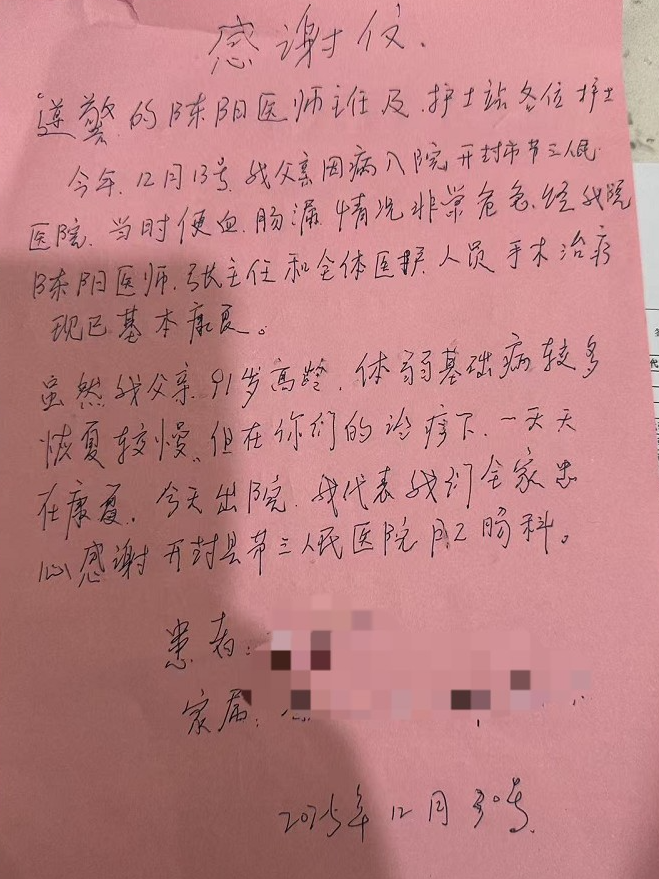 感谢信.
遵敬的陈阳医师主任及.护士站各位护士
今年.12月13号.我父亲因病入院开封市第三人民
医院.当时便血.肠漏.情况非常危急.经我院
陈阳医师.张主任和全体医护人员手术治疗
现已基本康复。
虽然我父亲91岁高龄.体弱基础病较多
恢复较慢.但在你们的治疗下.一天天
在康复.今天出院.我代表我们全家忠
心感谢开封县第三人民医院肛肠科。
患者:
家属:
2025年12月30号.